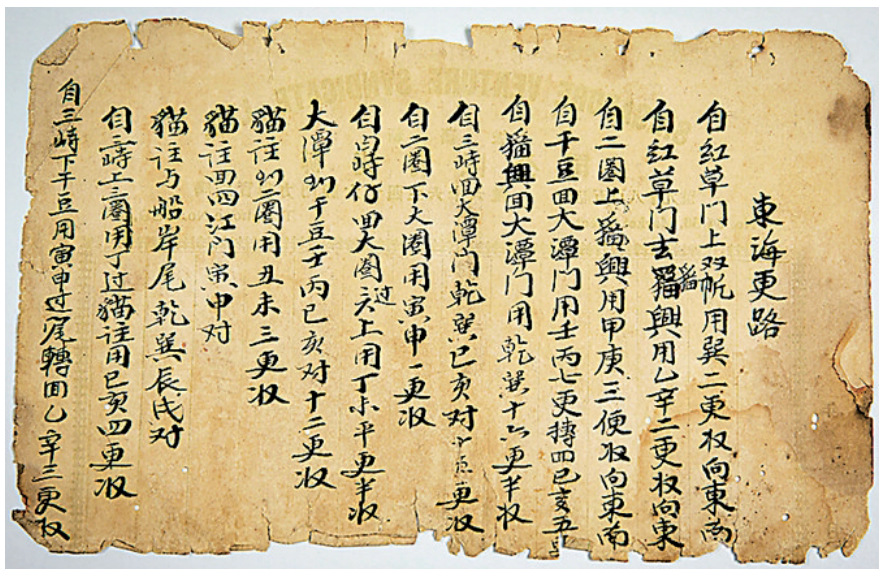 東海更路
自紅草门上双帆用巽二更收向東南
自紅草门去猫興用乙辛二更收向東
自二圈上猫興用甲庚三便收向東南
自干豆回大潭门用壬丙七更轉回巳亥五更
自猫興回大潭门用乾巽十六更半收
自三峙回大潭门乾巽巳亥对十五更收
自二圈下大圈用寅申一更收
自白峙仔回大圈过上用丁未平更半收
大潭㘰干豆壬丙巳亥对十二更收
猫注㘰二圈用丑未三更收
猫注回四江门寅申对
猫注与船岸尾乾巽辰戌对
自三峙上三圈用丁过猫注用巳亥四更收
自三峙下干豆用寅申过尾轉回乙辛三更收
VENTURE SYNDICATE